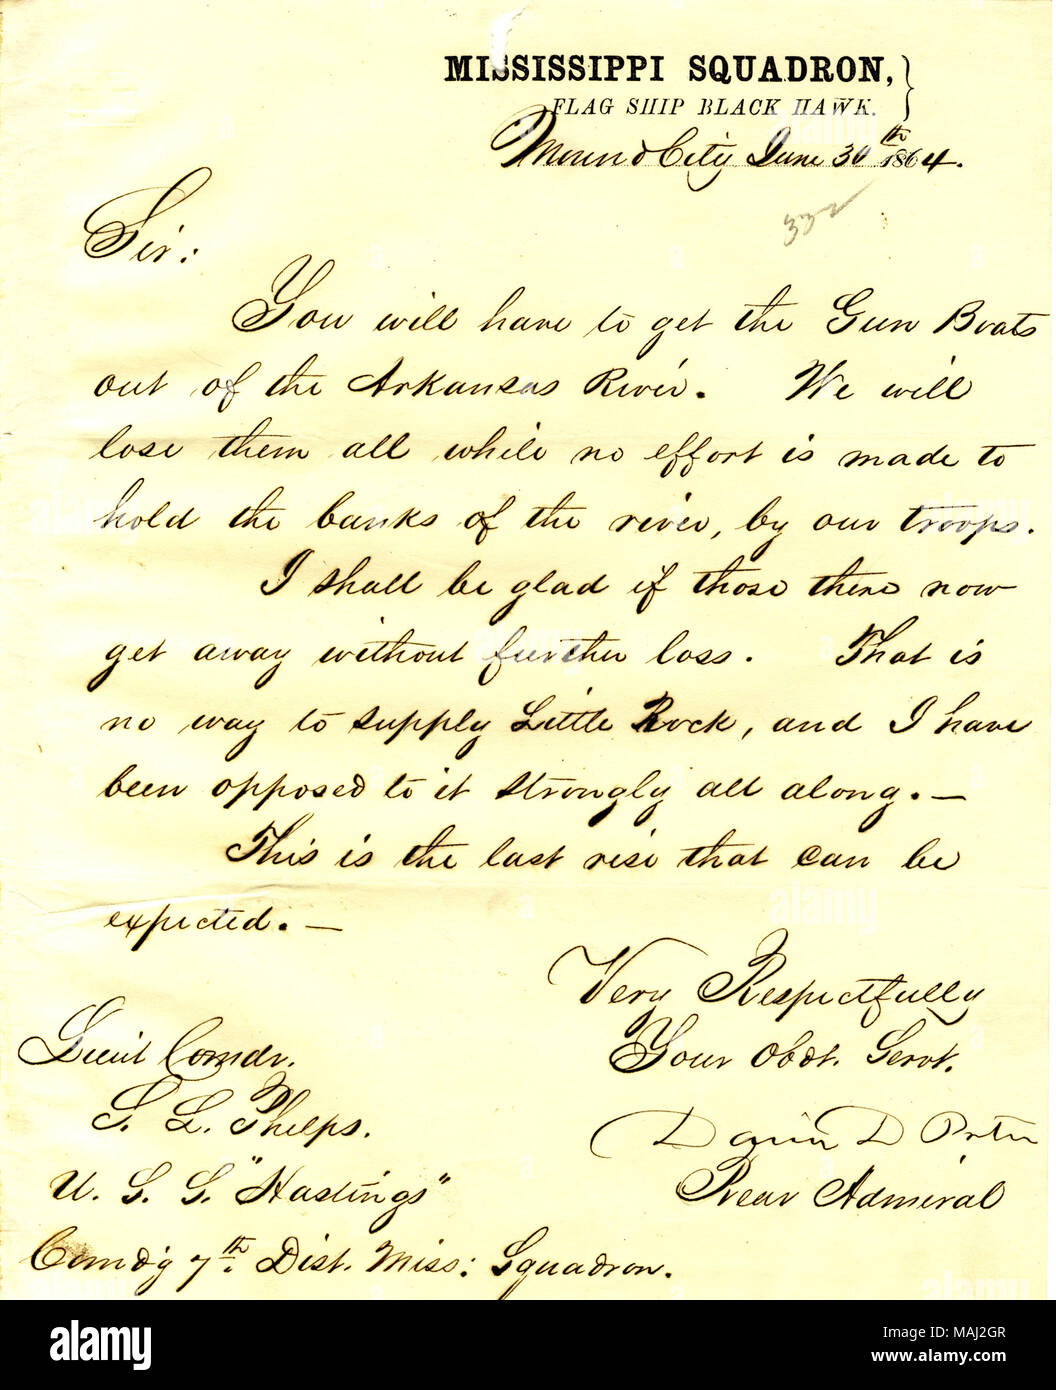 MISSISSIPPI SQUADRON,
FLAG SHIP BLACK HAWK.
Mound City June 30th 1864.
332
Sir:
You will have to get the Gun Boats
out of the Arkansas River. We will
lose them all while no effort is made to
hold the banks of the river, by our troops.
I shall be glad if those there now
get away without further loss. That is
no way to supply Little Rock, and I have
been opposed to it strongly all along. —
This is the last rise that can be
expected. —
Very Respectfully
Your Obdt. Servt.
David D Porter
Rear Admiral
Lieut Comdr.
S. L. Phelps.
U. S. S. "Hastings"
Comd'g 7th. Dist. Miss: Squadron.
alamy
Image ID: MAJ2GR
www.alamy.com